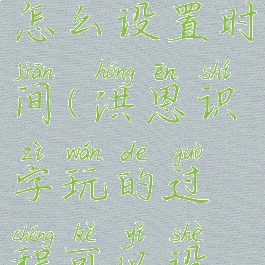 怎么设置时
jiān hóng ēn shí
间(洪恩识
zì wán de guò
字玩的过
chéng kě yǐ shè
程可以设